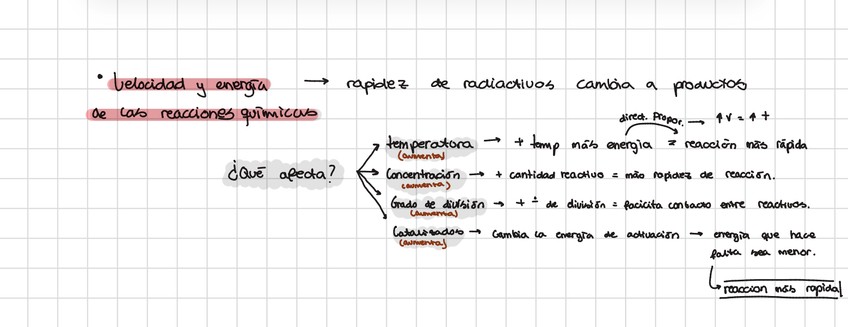 • Velocidad y energía → rapidez de radiactivos cambia a productos
de las reacciones químicas
direct. Propor. → ↑v = ↑t
temperatura → + temp más energía = reacción más rápida
(aumenta)
¿Qué afecta?
Concentración → + cantidad reactivo = más rapidez de reacción.
(aumenta)
Grado de división → + de división = facicita contacto entre reactivos.
(aumenta)
(aumenta) → Cambia la energía de activación → energía que hace
falta sea menor.
reaccion más rapida